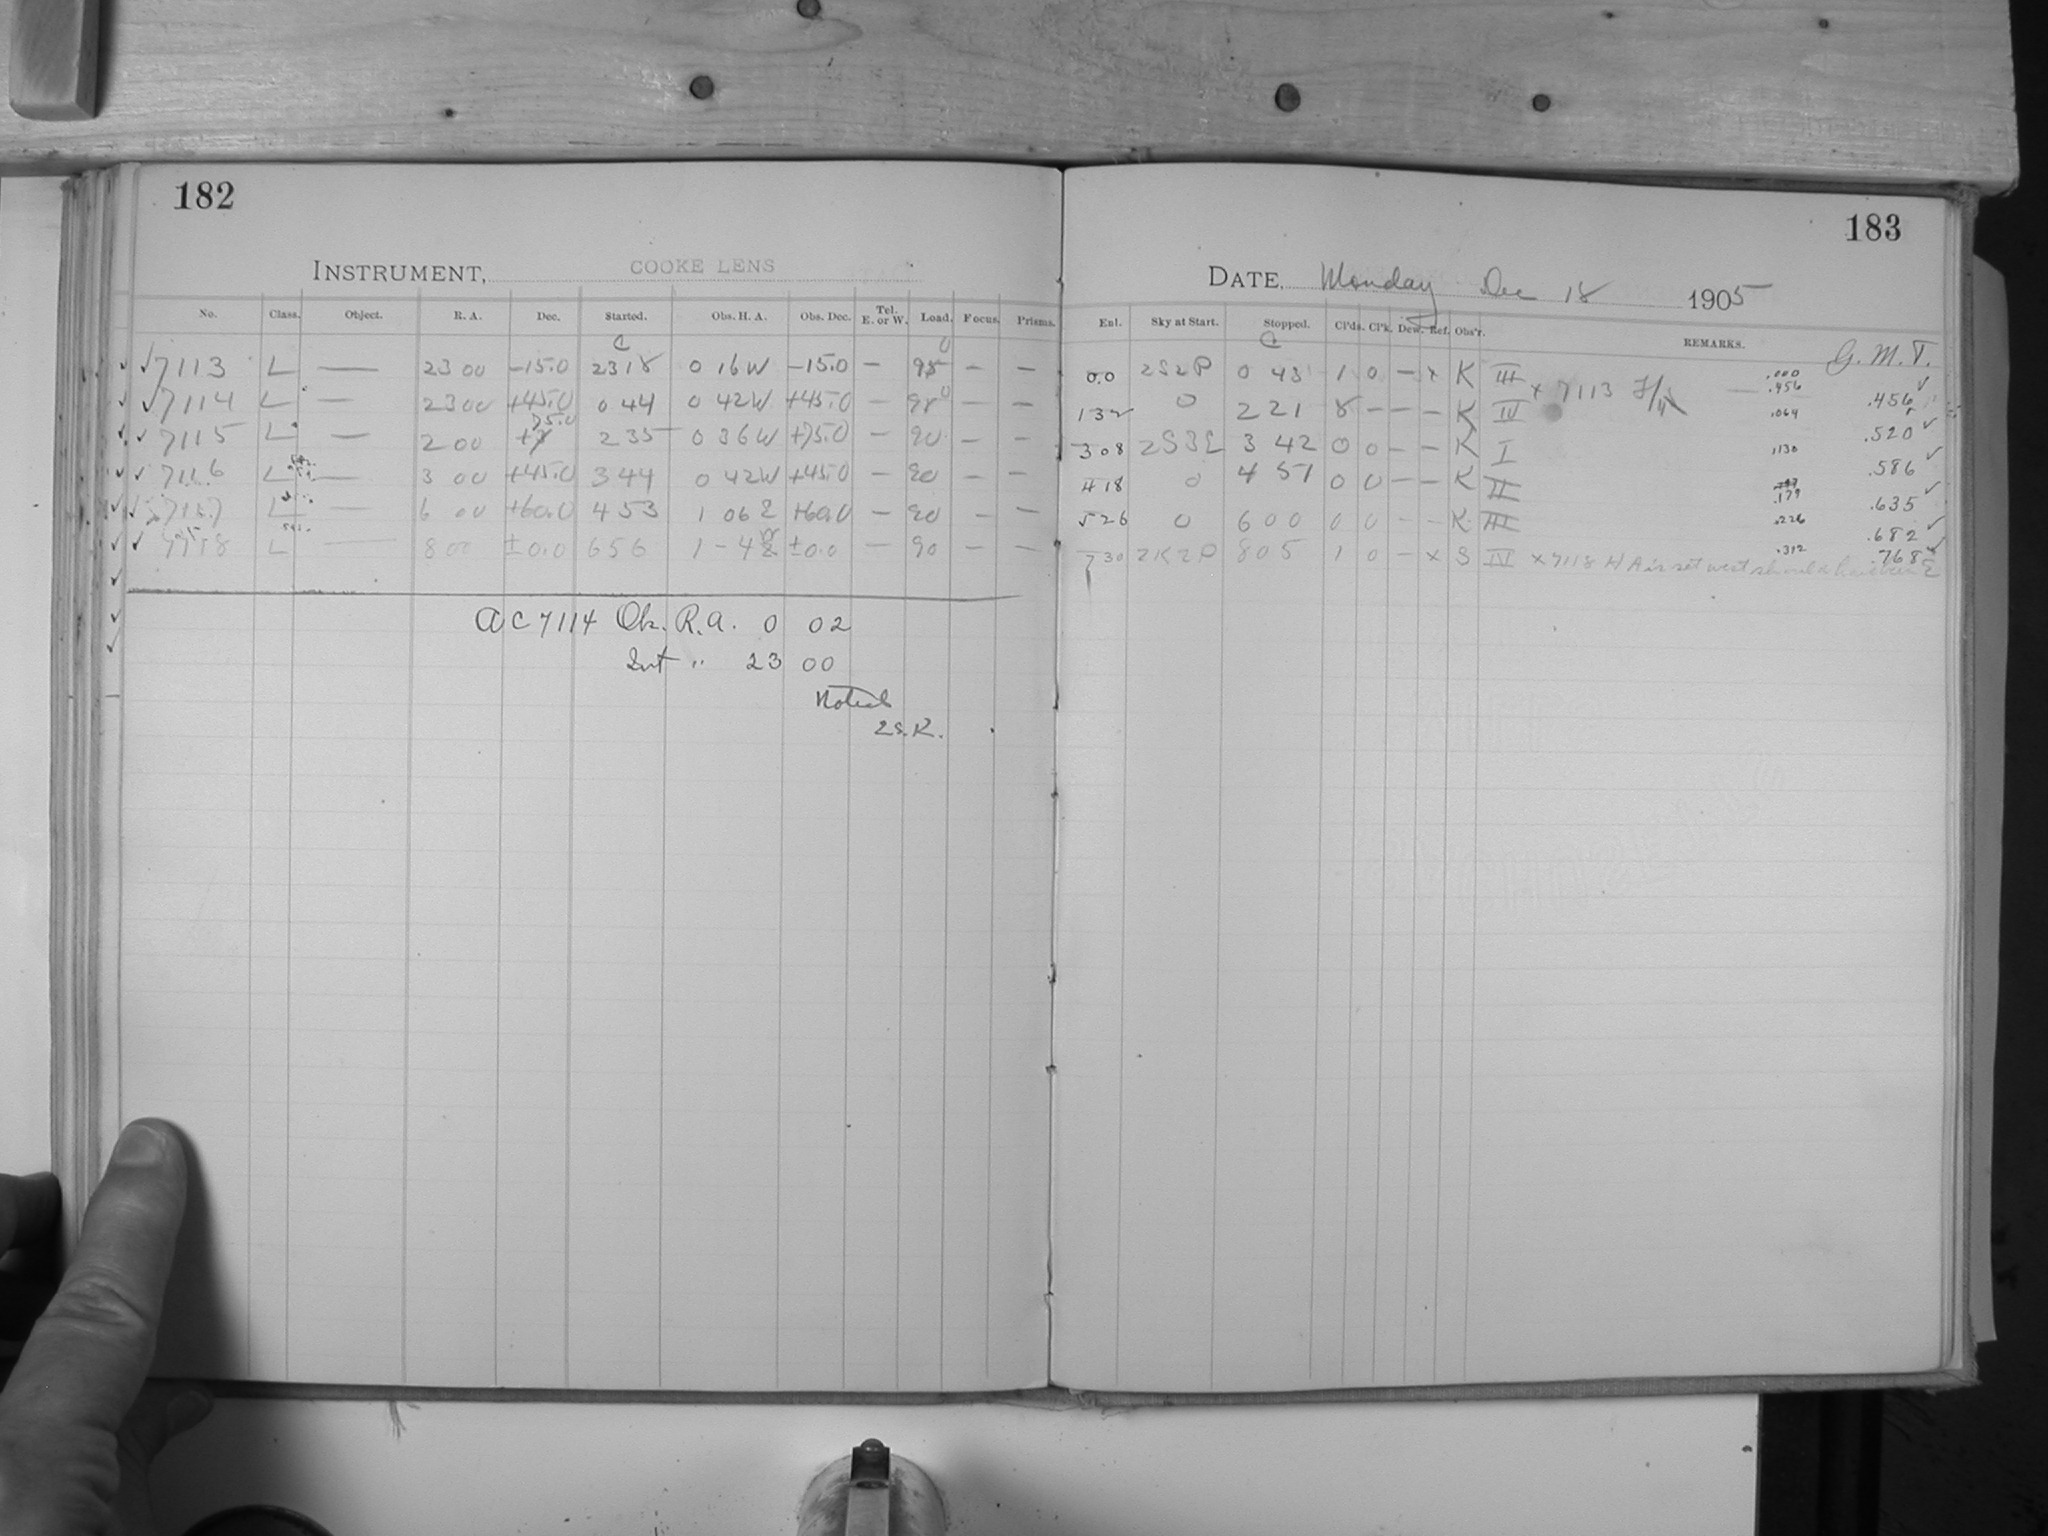 182
INSTRUMENT, COOKE LENS
No. Class. Object. R. A. Dec. Started. Obs. H. A. Obs. Dec. Tel. E. or W. Load. Focus. Prisms.
C
7113 L — 23 00 –15.0 23 18 0 16 W –15.0 — — —
7114 L — 23 00 +45.0 0 44 0 42 W +45.0 — — —
7115 L — 2 00 +75.0 2 35 0 36 W +75.0 — 90 — —
7116 L — 3 00 +45.0 3 44 0 42 W +45.0 — 90 — —
7117 L — 6 00 +60.0 4 53 1 06 E +60.0 — 90 — —
7118 L — 8 00 ±0.0 6 56 1 – 4 ±0.0 — 90 — —
A C 7114 Ob. R. A. 0 02
Int " 23 00
Noted
E.S.K.
183
DATE, Monday Dec 18 1905
Enl. Sky at Start. Stopped. Cl'ds. Cl'k. Dew. Ref. Obs'r. REMARKS.
C G. M. T.
0.0 2S2P 0 43 1 0 – x K III x 7113 — .000 .456 .456
1 32 0 2 21 8 – – – K IV .064 .520
3 08 2S3E 3 42 0 0 – – K I .130 .586
4 18 0 4 51 0 0 – – K II .179 .635
5 26 0 6 00 0 0 – – K III .226 .682
7 30 2K2P 8 05 1 0 – x S IV x 7118 H A is set west should have been E .312 .768